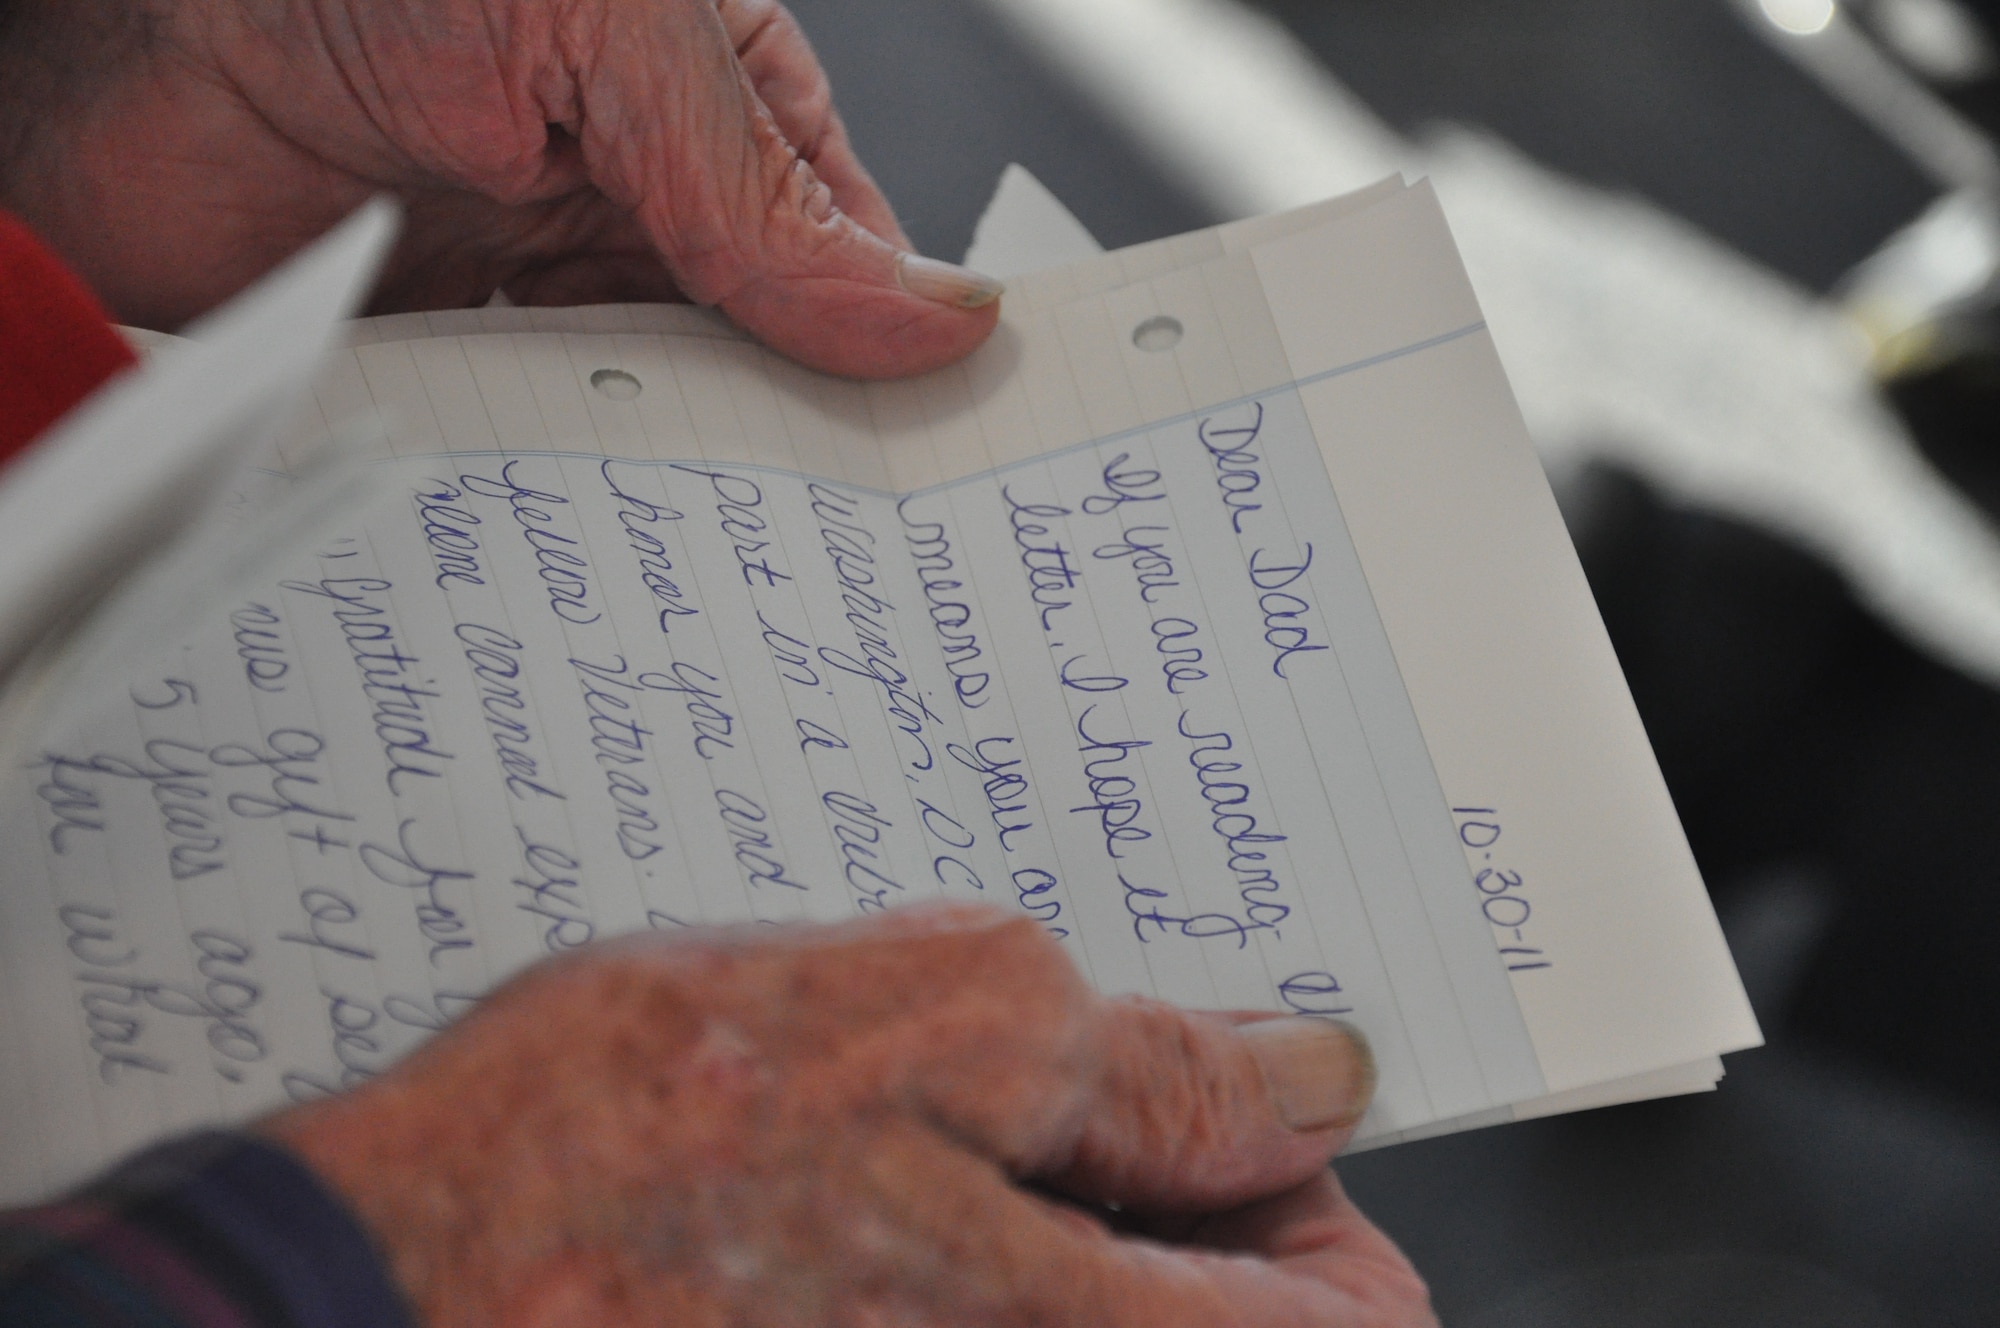 10-30-11
Dear Dad
If you are reading
letter, I hope it
means you are
Washington, DC
part in a
honor you and
fellow Veterans.
here cannot
"Gratitude for
gift of
5 years ago,
for what